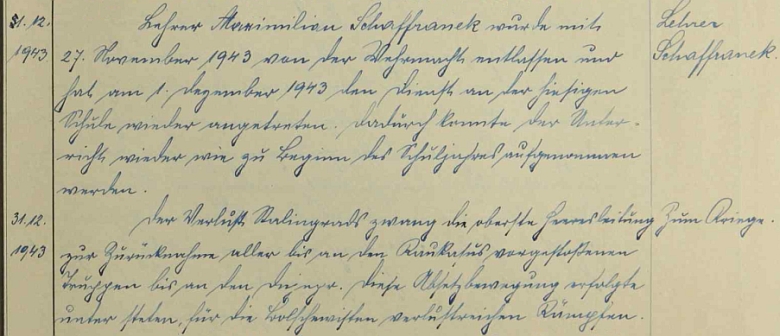 31.12. Lehrer Maximilian Schaffranek wurde mit Lehrer
1943 27. November 1943 von der Wehrmacht entlassen und Schaffranek.
hat am 1. Dezember 1943 den Dienst an der hiesigen
Schule wieder angetreten. Dadurch konnte der Unter-
richt wieder wie zu Beginn des Schuljahres aufgenommen
werden.
31.12. Der Verlust Stalingrads zwang die oberste Heeresleitung Zum Kriege.
1943 zur Zurücknahme aller bis an den Kaukasus vorgestoßenen
Truppen bis an den Dnepr. Diese Absetzbewegung erfolgte
unter steten, für die Bolschewisten verlustreichen Kämpfen.